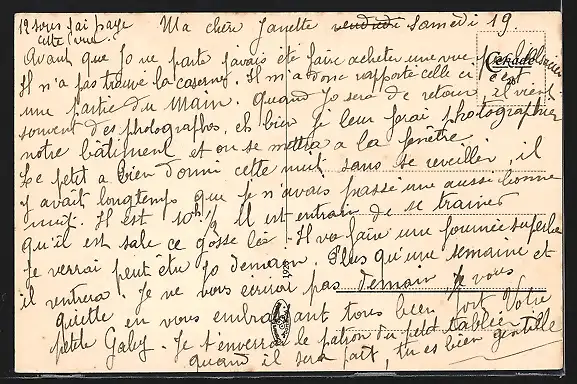 12 sous j'ai payé
cette vue.
Ma chère Janette vendredi samedi 19
Avant que Jo ne parte j'avais été faire acheter une vue par l'
Il n'a pas trouvé la caserne. Il m'a donc rapporté celle ci c'est
une partie du Main. Quand Jo sera de retour, il vient
souvent des photographes, eh bien je leur ferai photographier
notre bâtiment et on se mettra a la fenêtre.
Le petit a bien dormi cette nuit sans se reveiller, il
y avait longtemps que je n'avais passé une aussi bonne
nuit. Il est 10h 1/2 Il est entrain de se trainer
qu'il est sale ce gosse là. Il va faire une journée superbe
Je verrai peut être Jo demain. Plus qu'une semaine et
il rentrera. Je ne vous écrirai pas demain Je vous
quitte en vous embrassant tous bien fort Votre
petite Gaby. Je t'enverrai le patron du petit tablier
quand il sera fait, tu es bien gentille